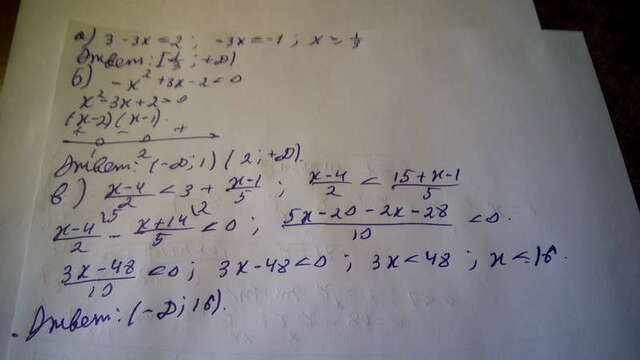 а) 3 - 3x = 2 ; -3x = -1 ; x = 1/3
Ответ: [1/3 ; +∞)
б) -x² + 3x - 2 < 0
x² - 3x + 2 = 0
(x-2)(x-1)
+ - +
1 2
Ответ: (-∞; 1) (2; +∞).
в) (x-4)/2 < 3 + (x-1)/5 ; (x-4)/2 < (15+x-1)/5
(x-4)/2 \5 - (x+14)/5 \2 < 0 ; (5x-20-2x-28)/10 < 0.
(3x-48)/10 < 0 ; 3x-48 < 0 ; 3x < 48 ; x < 16.
Ответ: (-∞; 16).